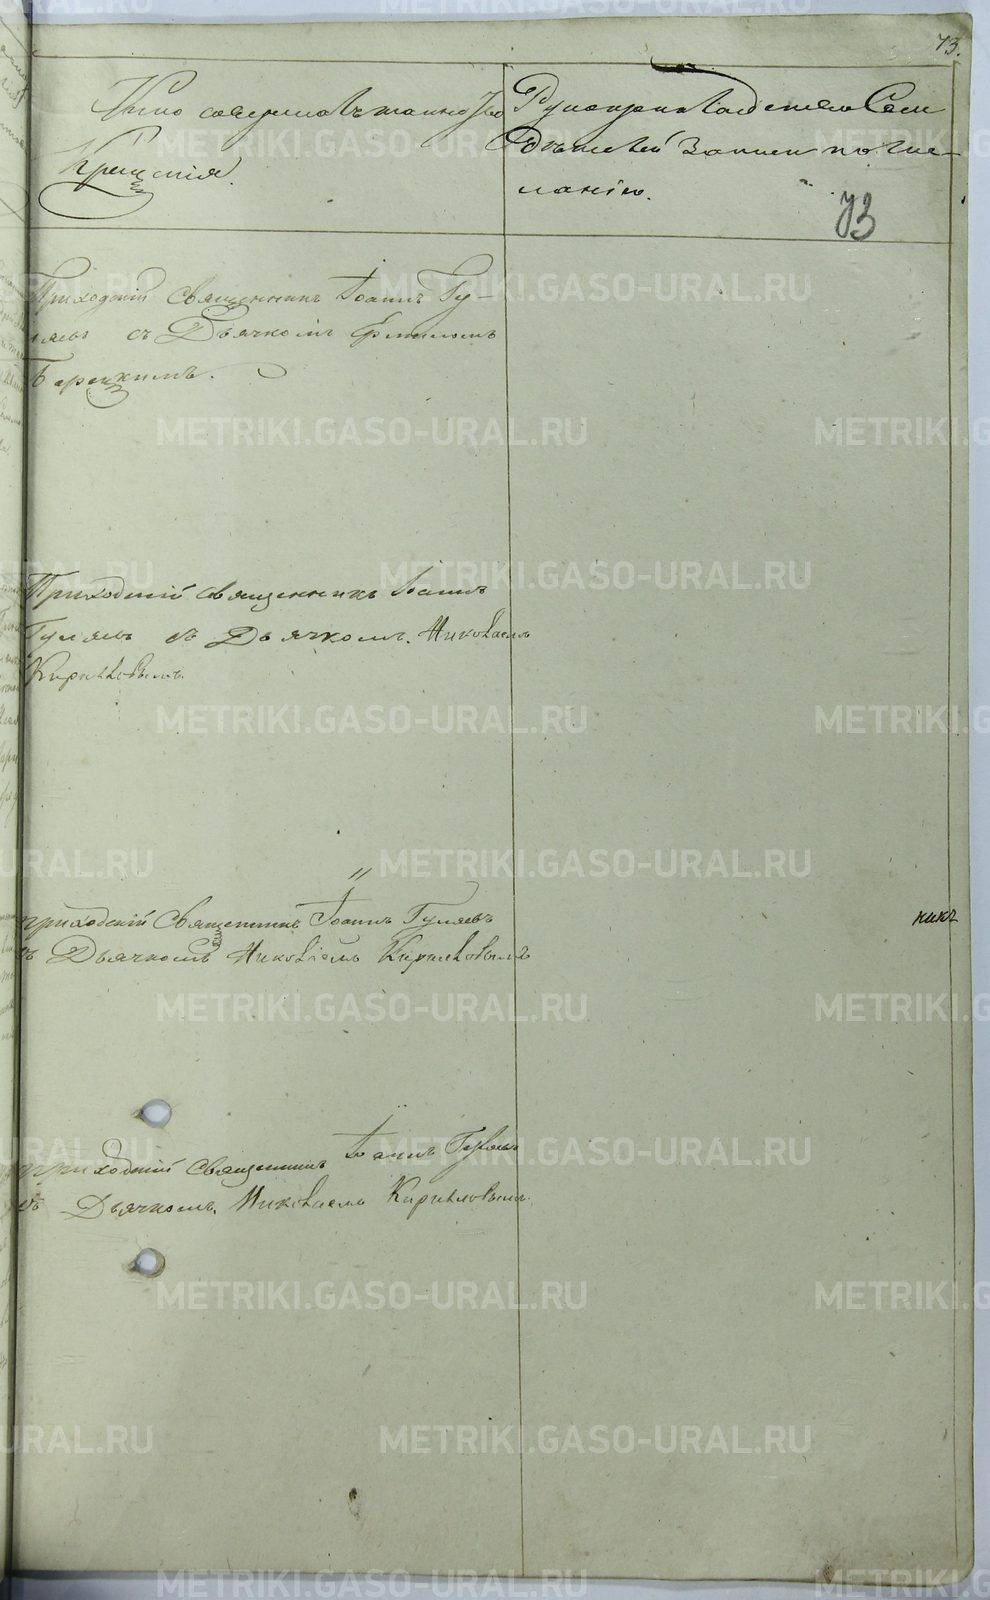 73.
Кто совершалъ таинство
Крещенія.
Рукоприкладство Сви
дѣтелей записи по же-
ланію.
73
Приходскій священникъ Іоаннъ Гу-
ляевъ съ Дьячкомъ
Приходскій священникъ Іоаннъ
Гуляевъ съ Дьячкомъ Николаемъ
Кириловымъ.
приходскій Священникъ Іоаннъ Гуляевъ
съ Дьячкомъ Николаемъ Кириловымъ
никъ
приходскій священникъ Іоаннъ Гуляевъ
съ Дьячкомъ Николаемъ Кириловымъ
METRIKI.GASO-URAL.RU